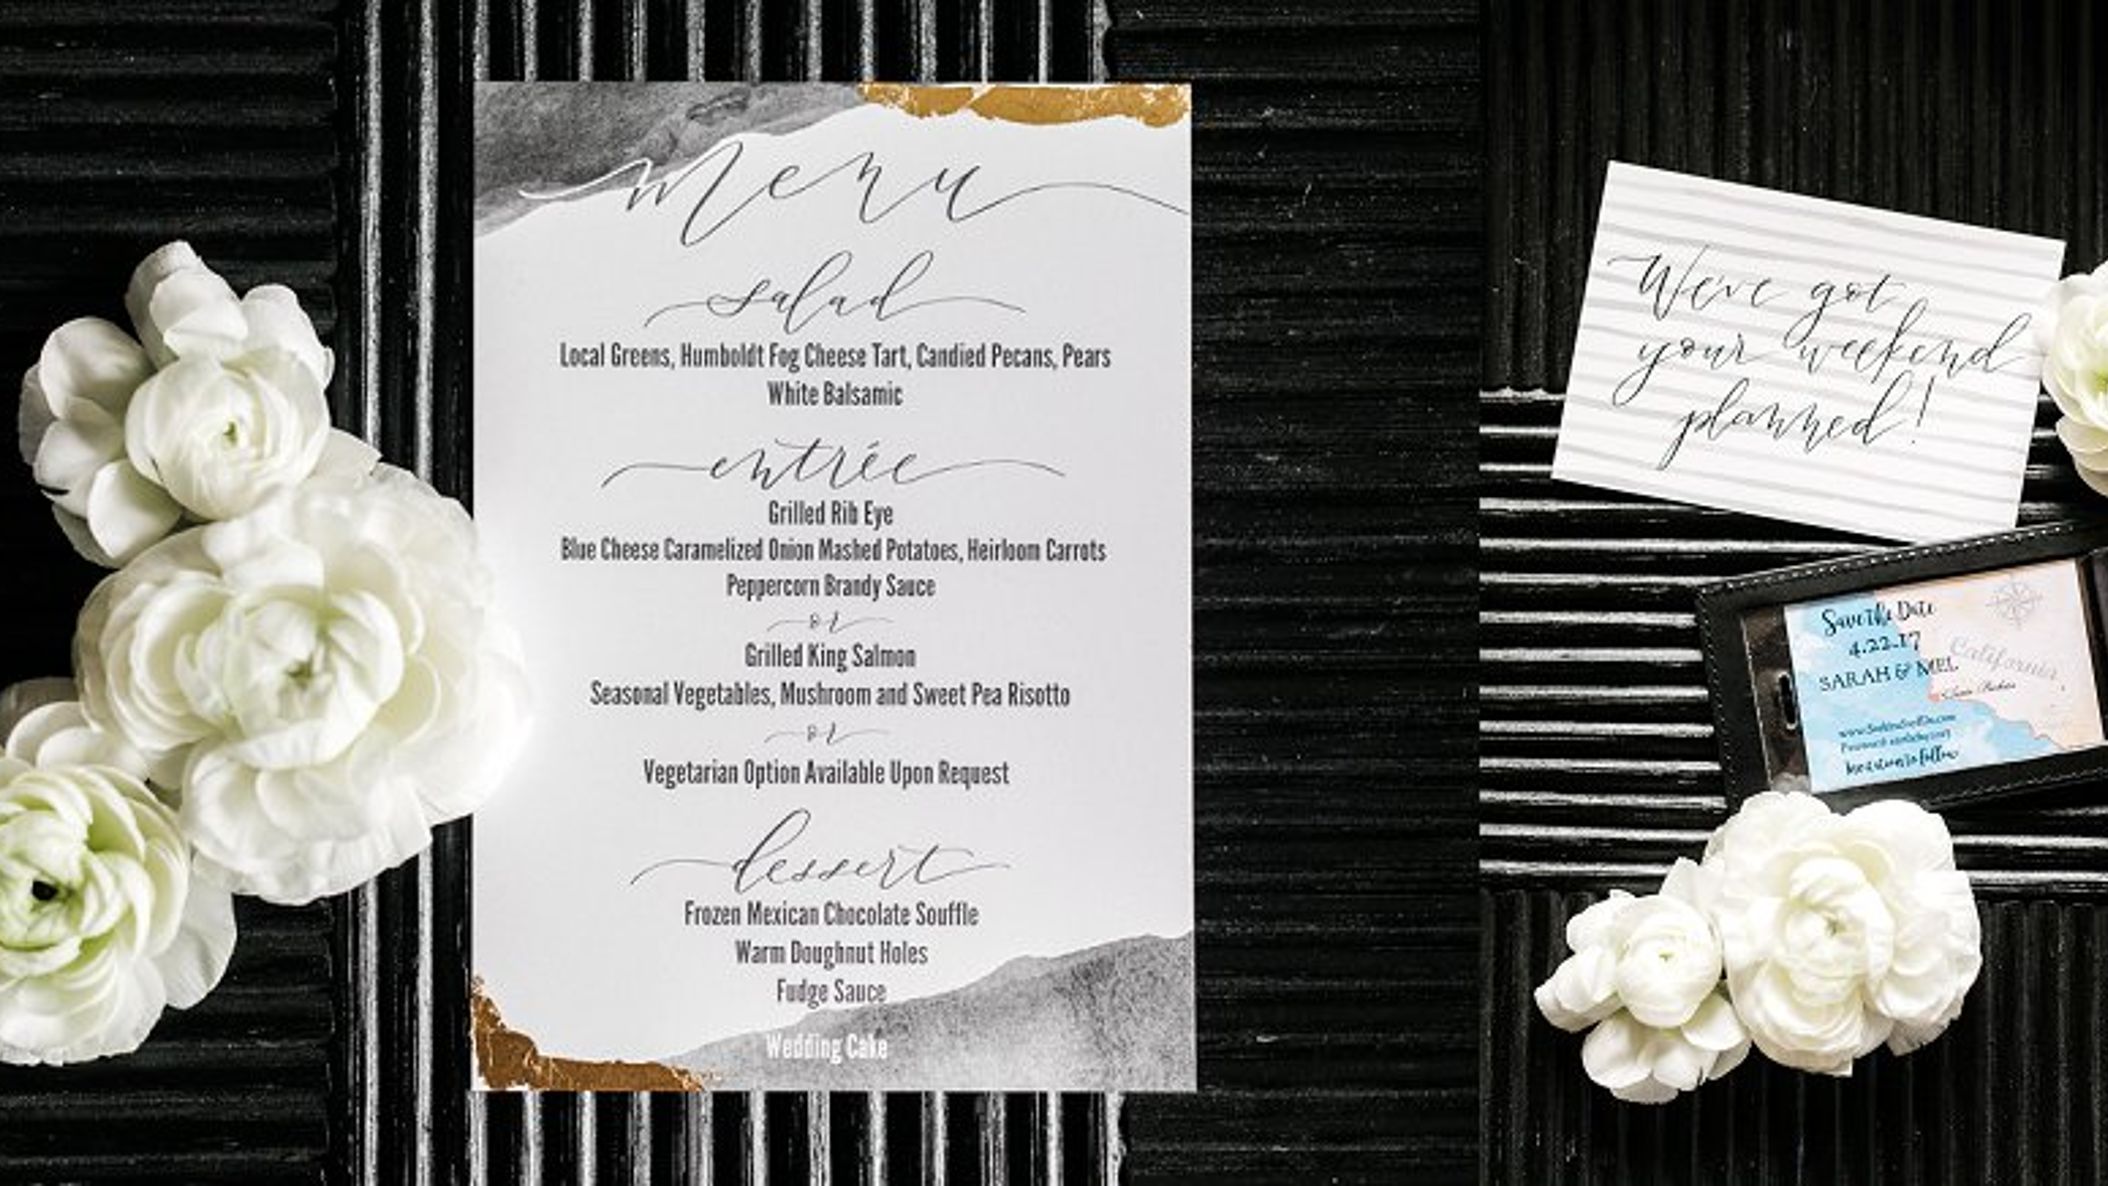 menu
salad
Local Greens, Humboldt Fog Cheese Tart, Candied Pecans, Pears
White Balsamic
entrée
Grilled Rib Eye
Blue Cheese Caramelized Onion Mashed Potatoes, Heirloom Carrots
Peppercorn Brandy Sauce
or
Grilled King Salmon
Seasonal Vegetables, Mushroom and Sweet Pea Risotto
or
Vegetarian Option Available Upon Request
dessert
Frozen Mexican Chocolate Souffle
Warm Doughnut Holes
Fudge Sauce
Wedding Cake
We've got
your weekend
planned!
Save the Date
4.22.17
SARAH & MEL
California
Santa Barbara
Invitation to follow